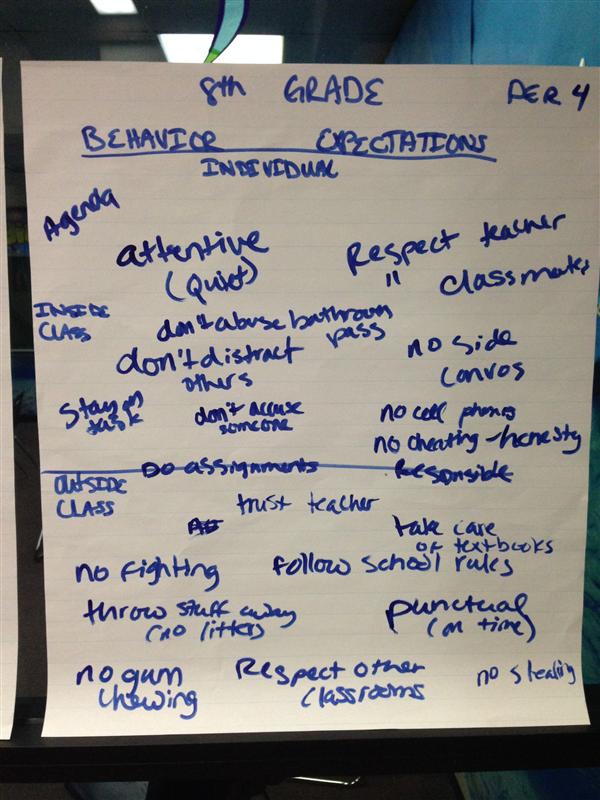 8th GRADE PER 4
BEHAVIOR EXPECTATIONS
INDIVIDUAL
Agenda
attentive
(Quiet)
Respect teacher
" classmates
INSIDE
CLASS
don't abuse bathroom
pass
don't distract
others
no side
convos
Stay on
task
don't accuse
someone
no cell phones
no cheating - honesty
Do assignments
Responsible
OUTSIDE
CLASS
trust teacher
take care
of textbooks
no fighting
follow school rules
throw stuff away
(no litter)
punctual
(on time)
no gum
chewing
Respect other
classrooms
no stealing